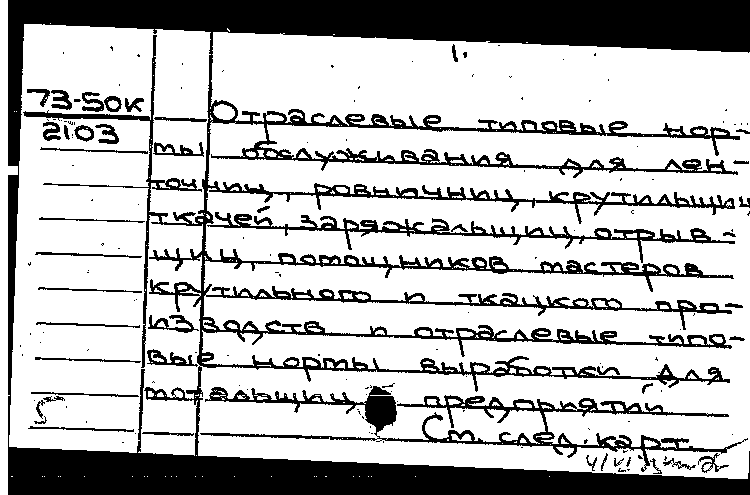 1.
73-50к
2103
Отраслевые типовые нор-
мы обслуживания для лен-
точниц, ровничниц, крутильщиц
ткачей, заряжальщиц, отрыв-
щиц, помощников мастеров
крутильного и ткацкого про-
изводств и отраслевые типо-
вые нормы выработки для
мотальщиц предприятий
См. след. карт.